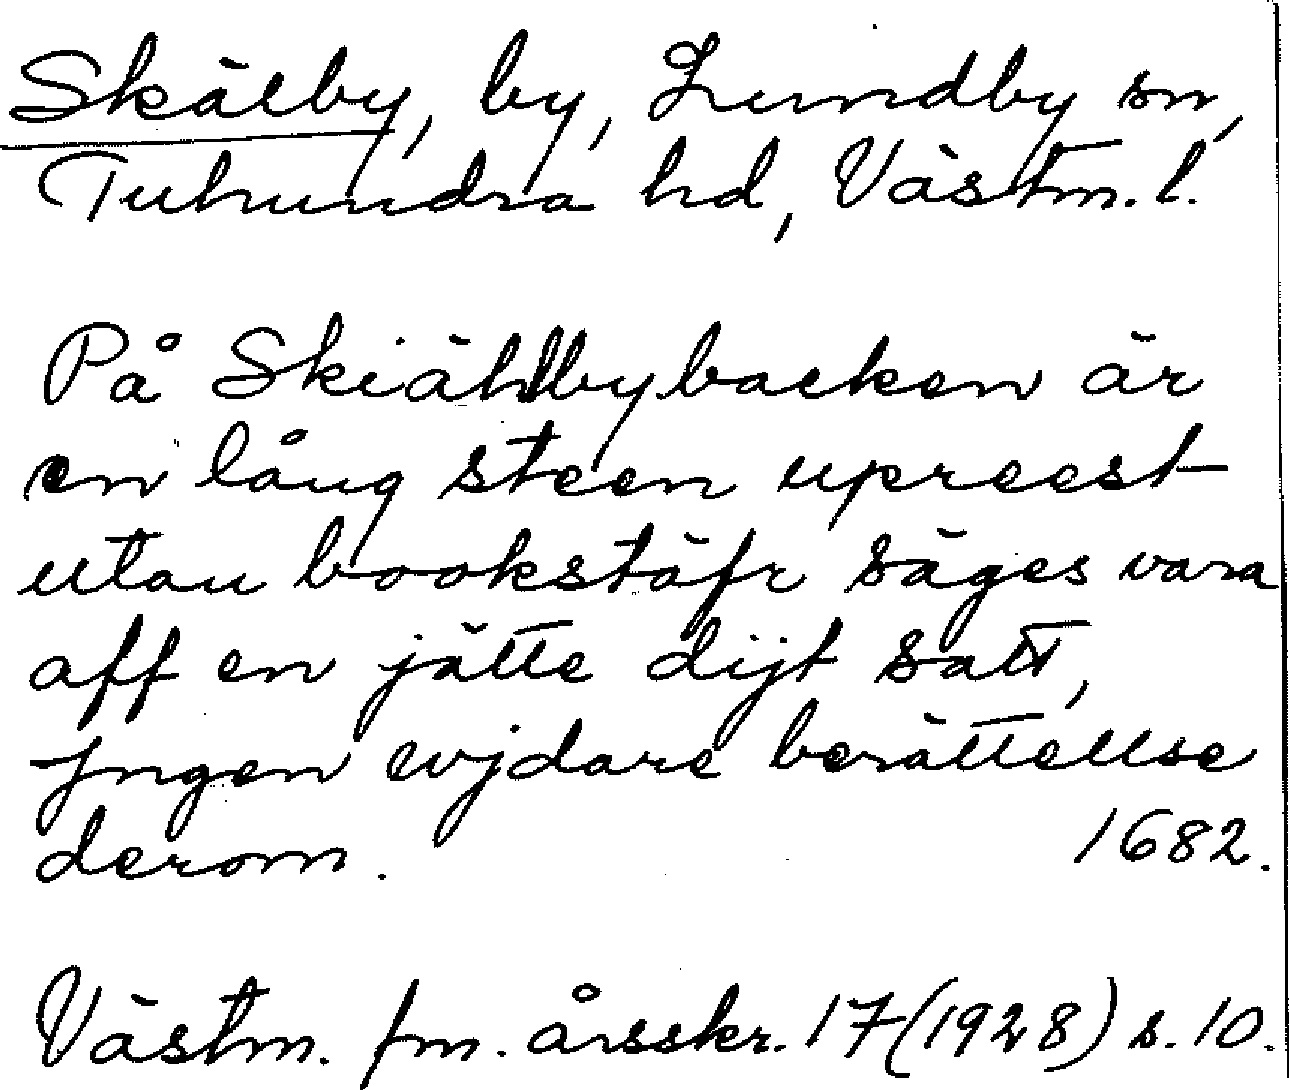 Skälby, by, Lundby sn,
Tuhundra hd, Västm. l.
På Skiählby backen är
en lång steen upreest
utan bookstäfr säges vara
aff en jätte dijt satt,
Jngen wjdare berättellse
derom. 1682.
Västm. fm. årsskr. 17 (1928) s. 10.